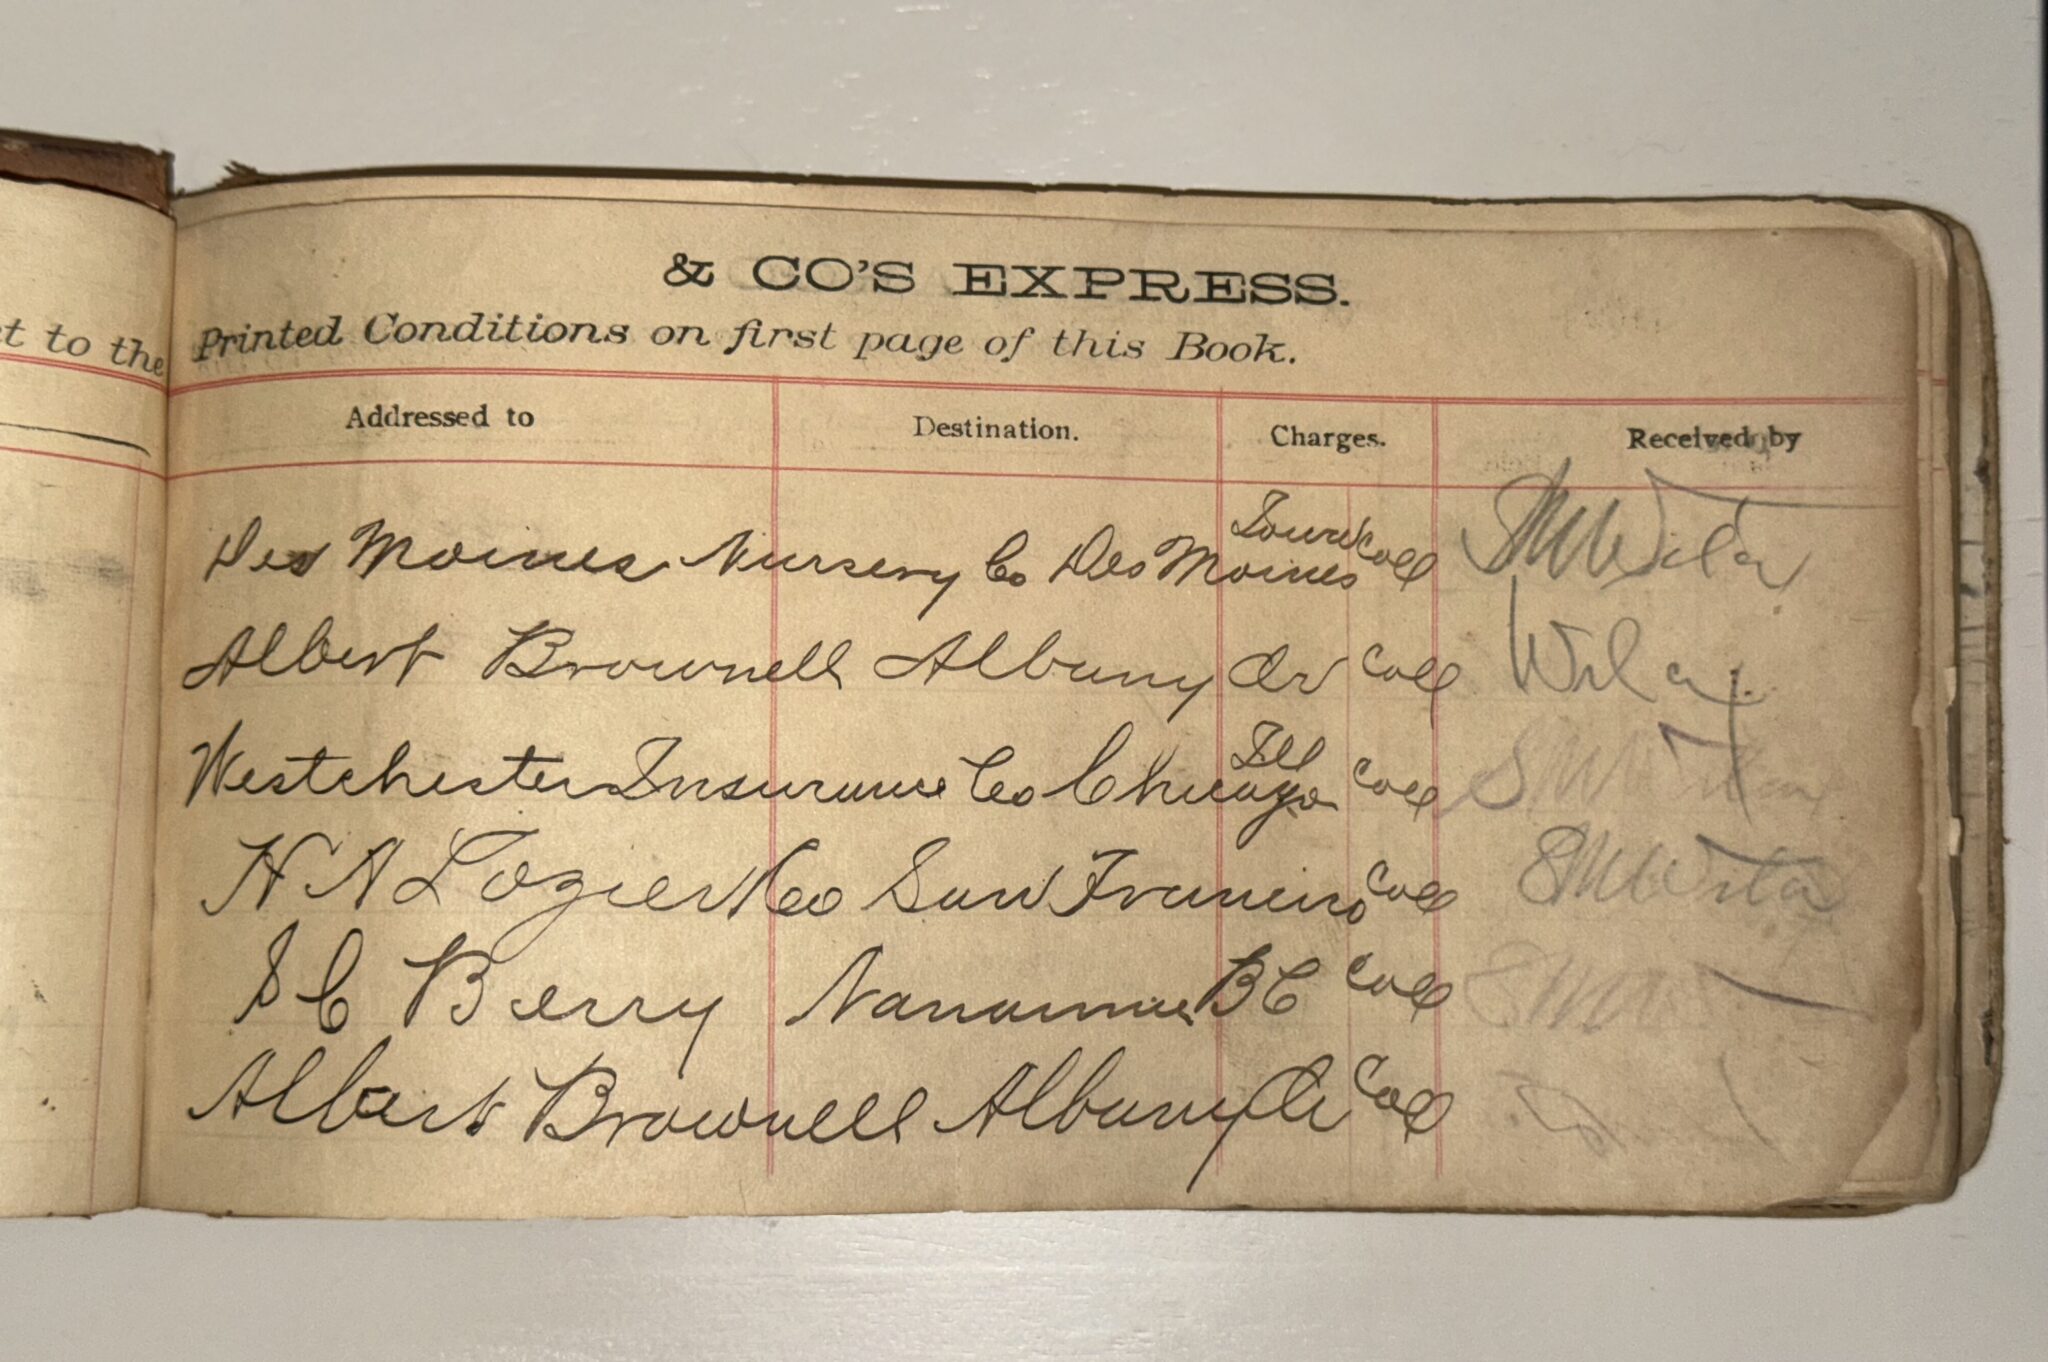 & CO'S EXPRESS.
et to the
Printed Conditions on first page of this Book.
Addressed to Destination. Charges. Received by
Des Moines Nursery Co Des Moines Iowa Coll
Albert Brownell Albany Or Coll
Westchester Insurance Co Chicago Ill Coll
H A Lozier & Co San Francisco Coll
S C Berry Nanaimo BC Coll
Albert Brownell Albany Or Coll